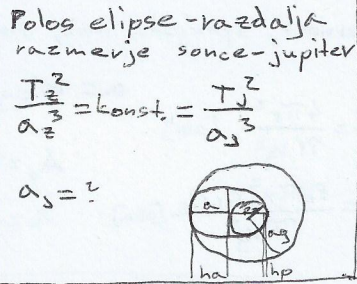 Polos elipse - razdalja
razmerje sonce - jupiter
T_z^2 / a_z^3 = konst. = T_J^2 / a_J^3
a_J = ?
a
a_g
ha
hp